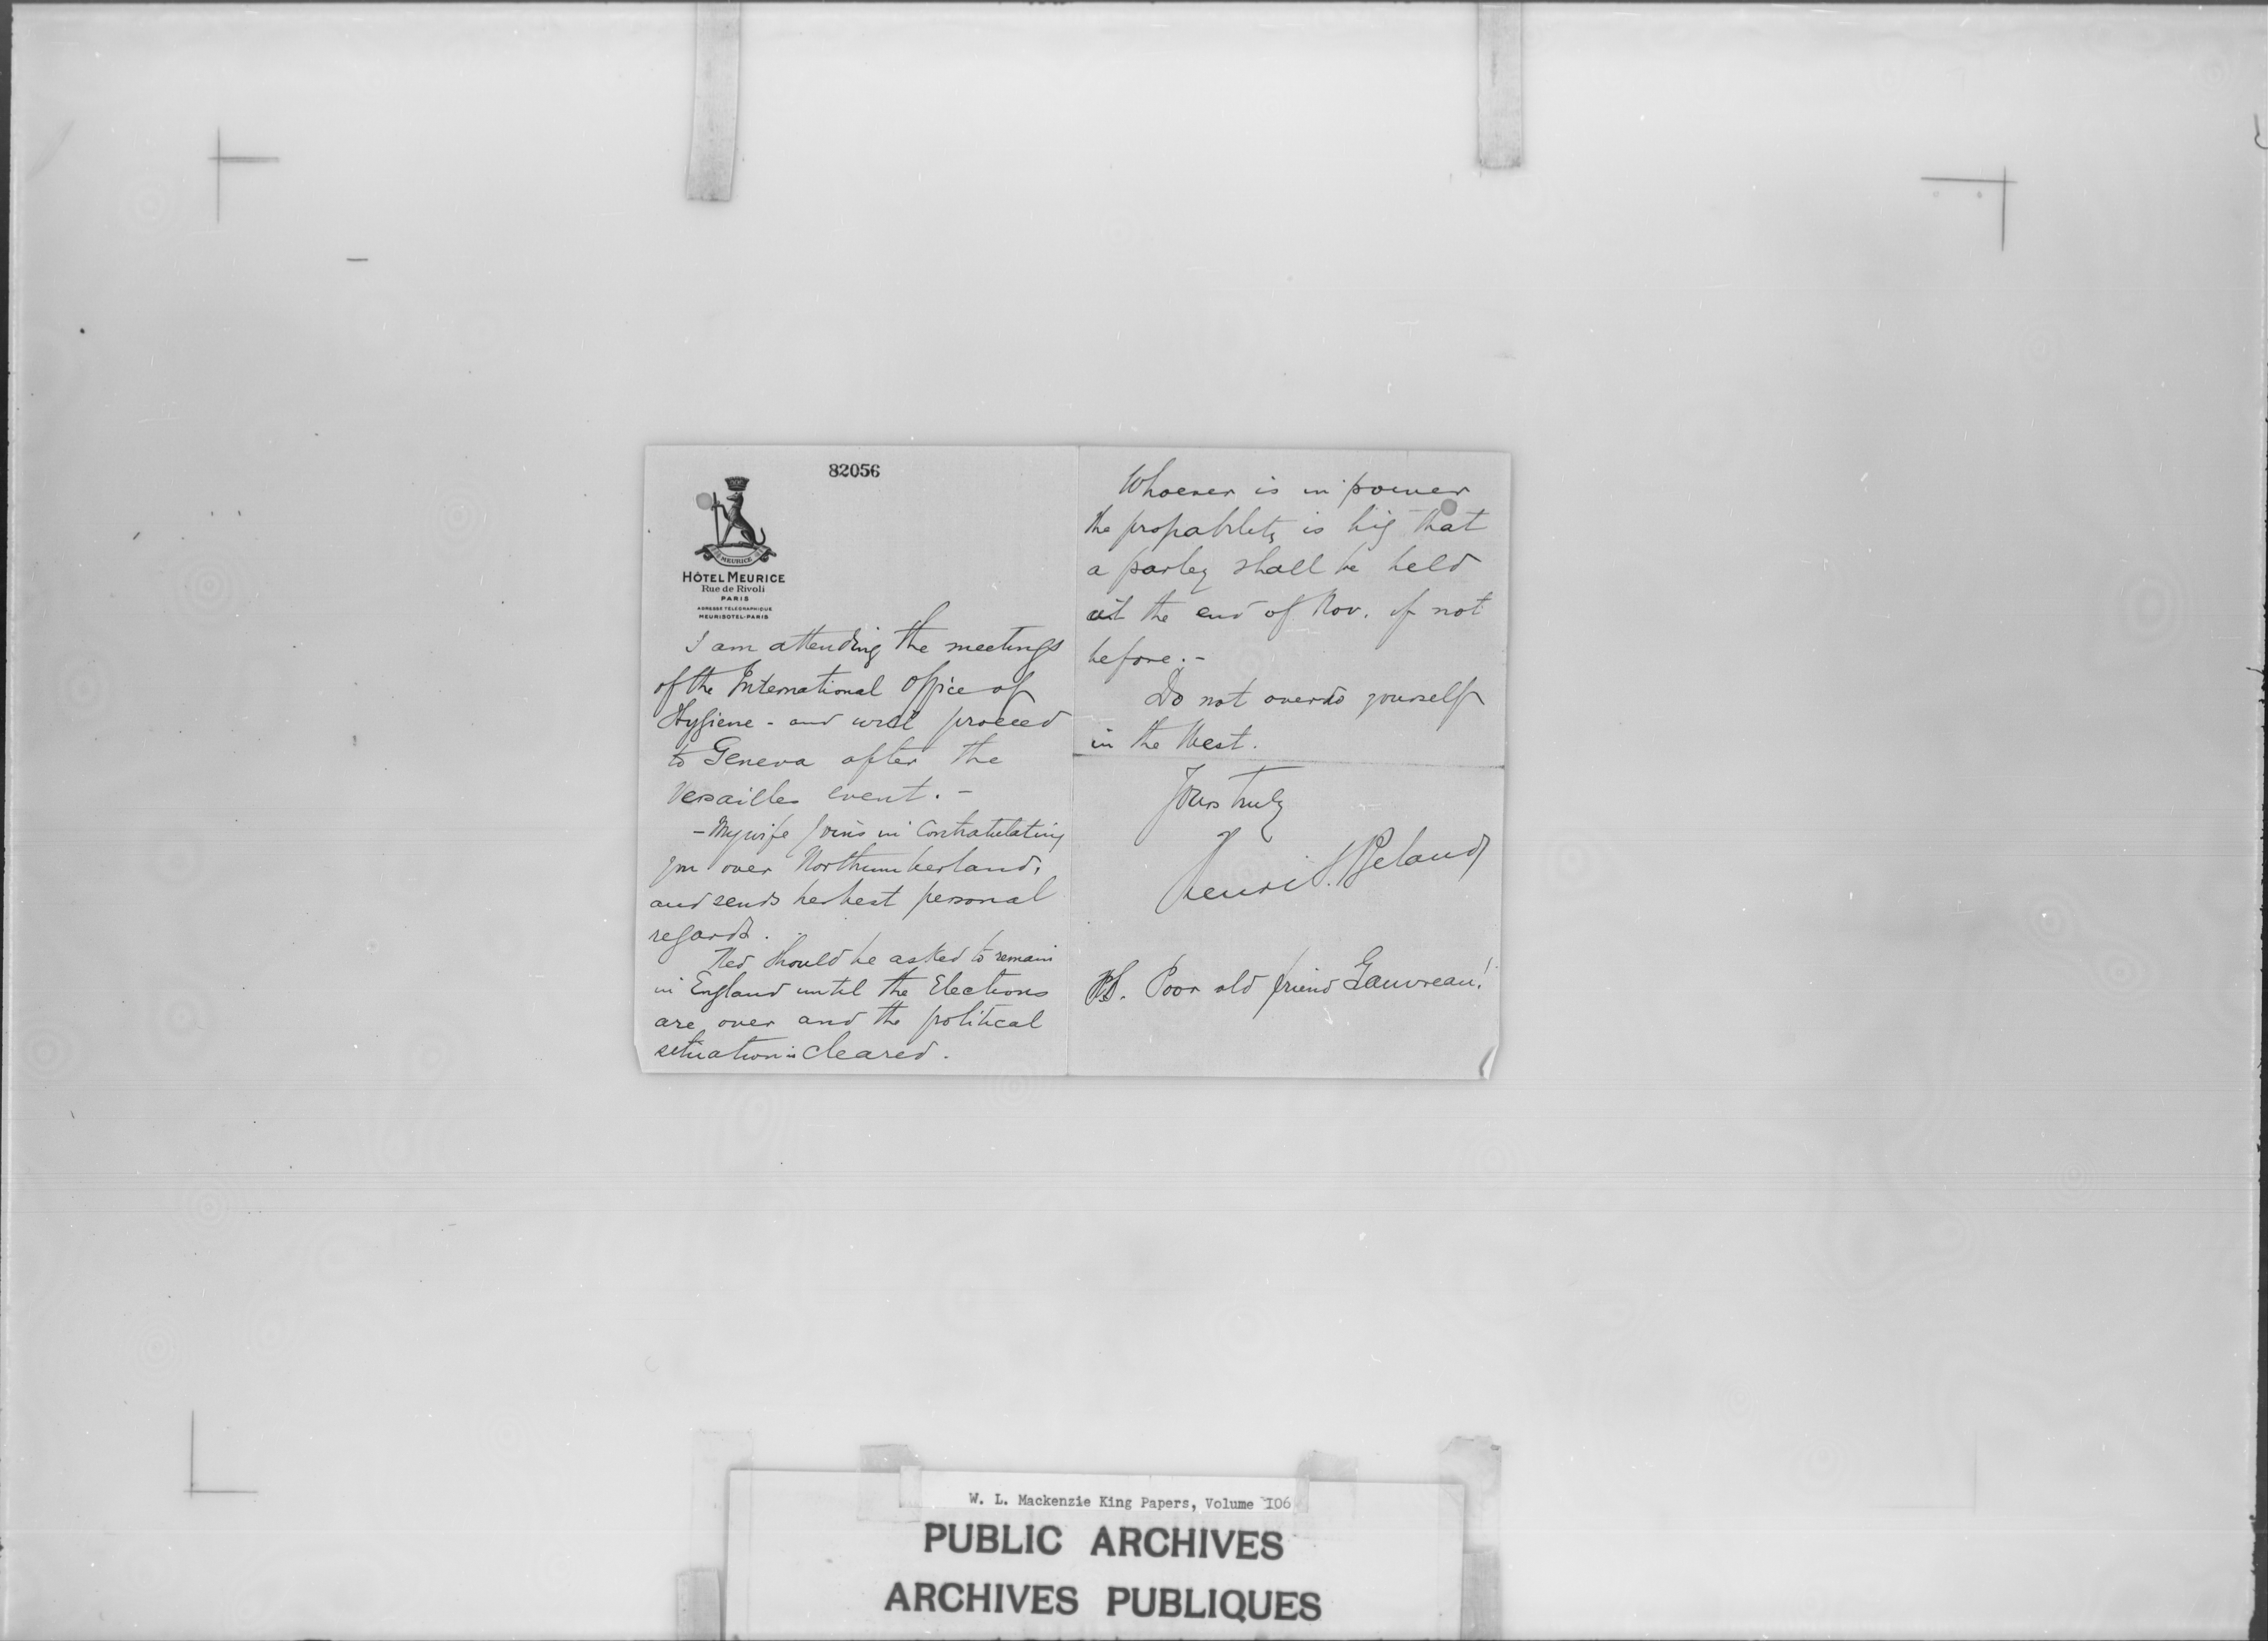 82056
MEURICE
HÔTEL MEURICE
Rue de Rivoli
PARIS
ADRESSE TÉLÉGRAPHIQUE
MEURISOTEL-PARIS
I am attending the meetings
of the International Office of
Hygiene - and will proceed
to Geneva after the
Versailles event. -
- My wife joins in Contratulating
you over Northumberland,
and sends her best personal
regards.
Ned should be asked to remain
in England until the Elections
are over and the political
situation is cleared.
Whoever is in power
the propability is big that
a parley shall be held
at the end of Nov. if not
before. -
Do not overdo yourself
in the West.
Yours truly
Henri S. Beland
PS. Poor old friend Gauvreau!
W. L. Mackenzie King Papers, Volume 106
PUBLIC ARCHIVES
ARCHIVES PUBLIQUES